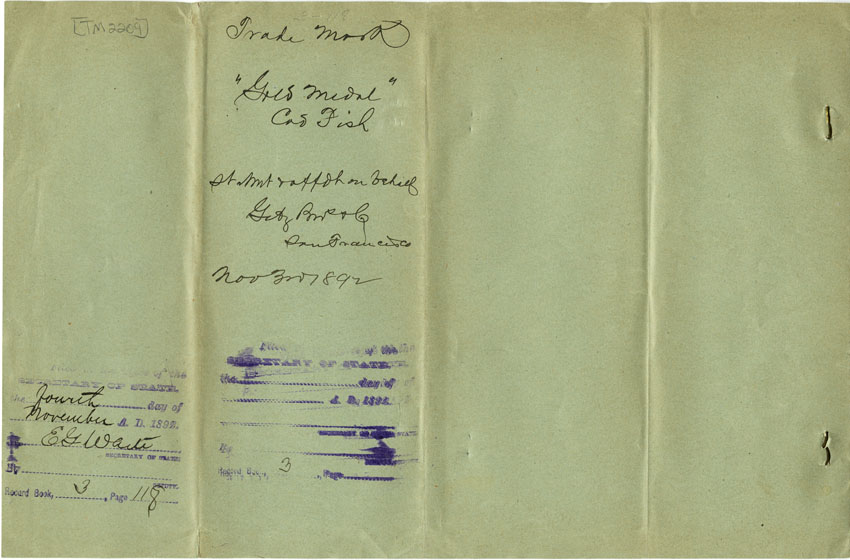 [TM2209]
Trade Mark
"Gold Medal"
Cod Fish
Statmt & affdt on behalf
Getz Bros & Co
San Francisco
Nov 3rd 1892
of the
SECRETARY OF STATE.
the Fourth day of
November A. D. 1892.
E G Waite
SECRETARY OF STATE
By
Record Book, 3, Page 118
of the
SECRETARY OF STATE
the day of
A. D. 1892.
SECRETARY OF STATE
By
Record Book, 3, Page